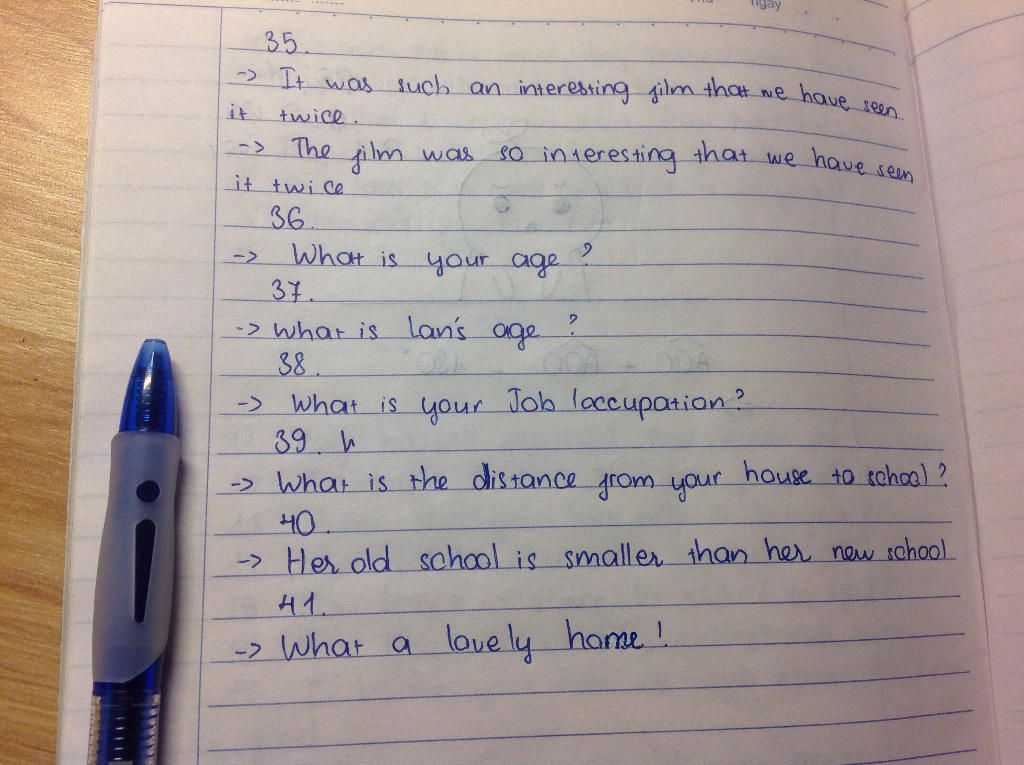 ngày
35.
-> It was such an interesting film that we have seen
it twice.
-> The film was so interesting that we have seen
it twice
36.
-> What is your age ?
37.
-> What is Lan's age ?
38.
-> What is your Job /occupation ?
39. h
-> What is the distance from your house to school ?
40.
-> Her old school is smaller than her new school
41.
-> What a lovely home !